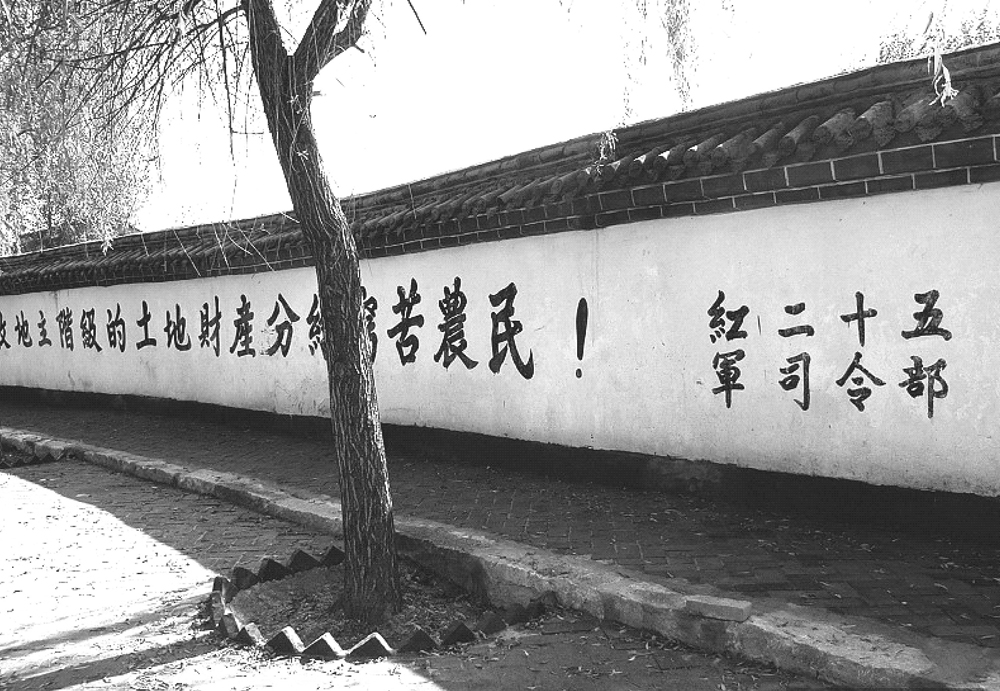 收地主階級的土地財產分給窮苦農民！
紅二十五
軍司令部